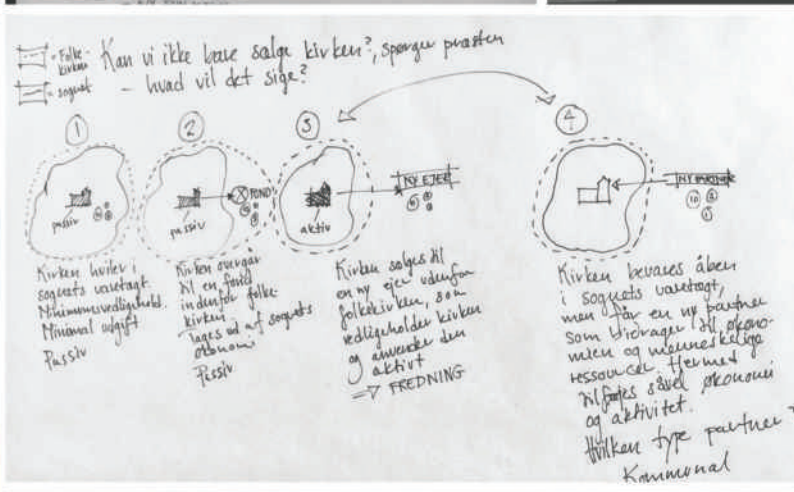 = Folke-
kirken
= sognet
Kan vi ikke bare sælge kirken?, spørger præsten
- hvad vil det sige?
1
passiv
Kirken hviler i
sognets varetægt.
Minimumsvedligehold.
Minimal udgift
Passiv
2
passiv
FOND
Kirken overgår
til en fond
indenfor folke-
kirken
Tages ud af sognets
økonomi
Passiv
3
aktiv
NY EJER
Kirken sælges til
en ny ejer udenfor
folkekirken, som
vedligeholder kirken
og anvender den
aktivt
⇒ FREDNING
4
NY PARTNER
10
Kirken bevares åben
i sognets varetægt,
men får en ny partner
som bidrager til økono-
mien og menneskelige
ressourcer. Hermed
tilføjes såvel økonomi
og aktivitet.
Hvilken type partner?
Kommunal